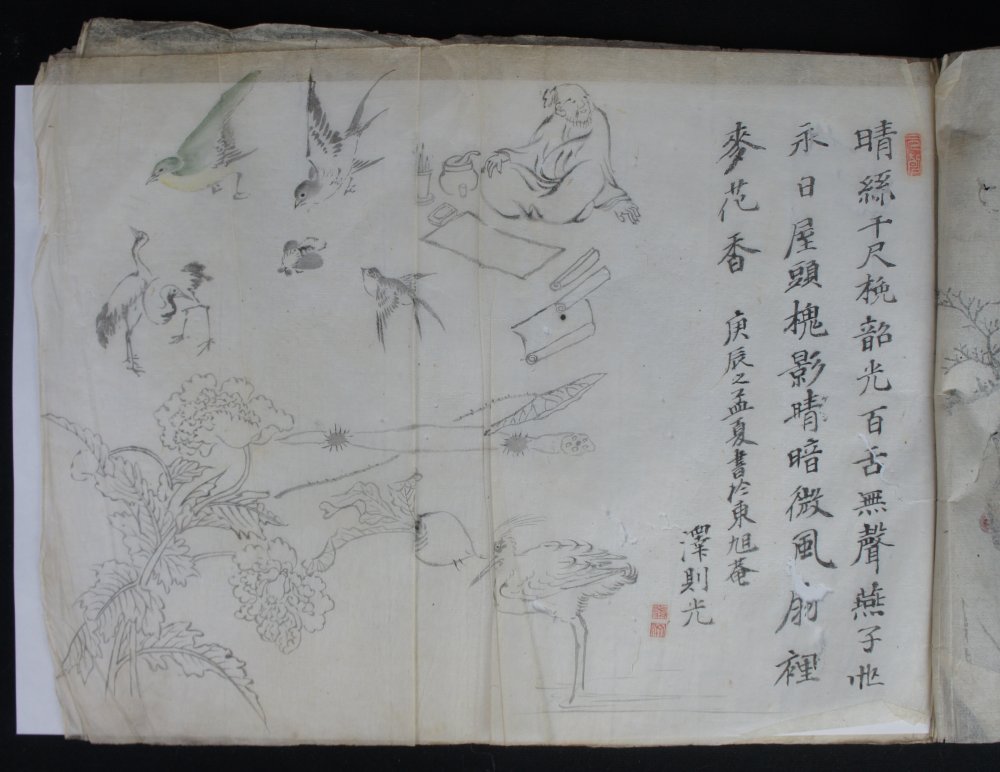 晴絲千尺挽韶光百舌無聲燕子忙
永日屋頭槐影晴暗微風扇裡
麥花香 庚辰之孟夏書於東旭菴
澤則光